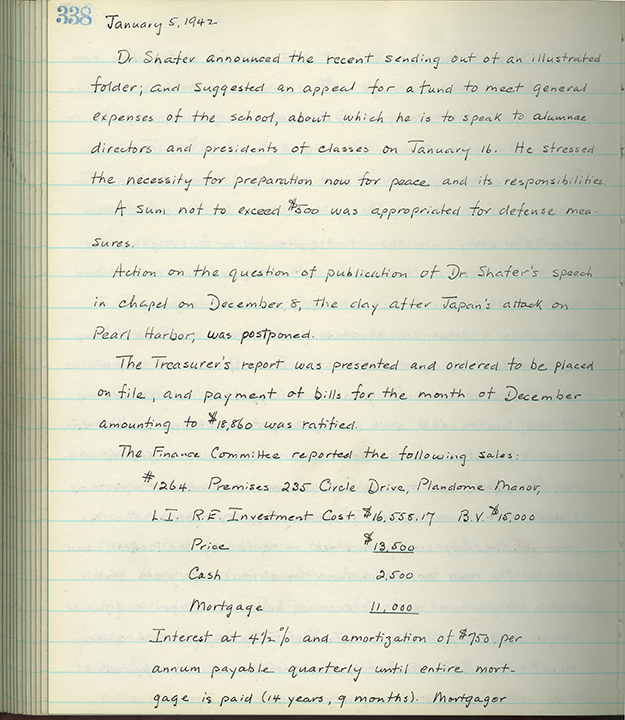 338
January 5, 1942
Dr Shafer announced the recent sending out of an illustrated
folder; and suggested an appeal for a fund to meet general
expenses of the school, about which he is to speak to alumnae
directors and presidents of classes on January 16. He stressed
the necessity for preparation now for peace and its responsibilities.
A sum not to exceed $500 was appropriated for defense mea-
sures.
Action on the question of publication of Dr. Shafer's speech
in chapel on December 8, the day after Japan's attack on
Pearl Harbor, was postponed.
The Treasurer's report was presented and ordered to be placed
on file, and payment of bills for the month of December
amounting to $18,860 was ratified.
The Finance Committee reported the following sales:
#1264. Premises 235 Circle Drive, Plandome Manor,
L.I. R.E. Investment Cost $16,558.17 B.V. $15,000
Price $13,500
Cash 2,500
Mortgage 11,000
Interest at 4½% and amortization of $750 per
annum payable quarterly until entire mort-
gage is paid (14 years, 9 months). Mortgagor